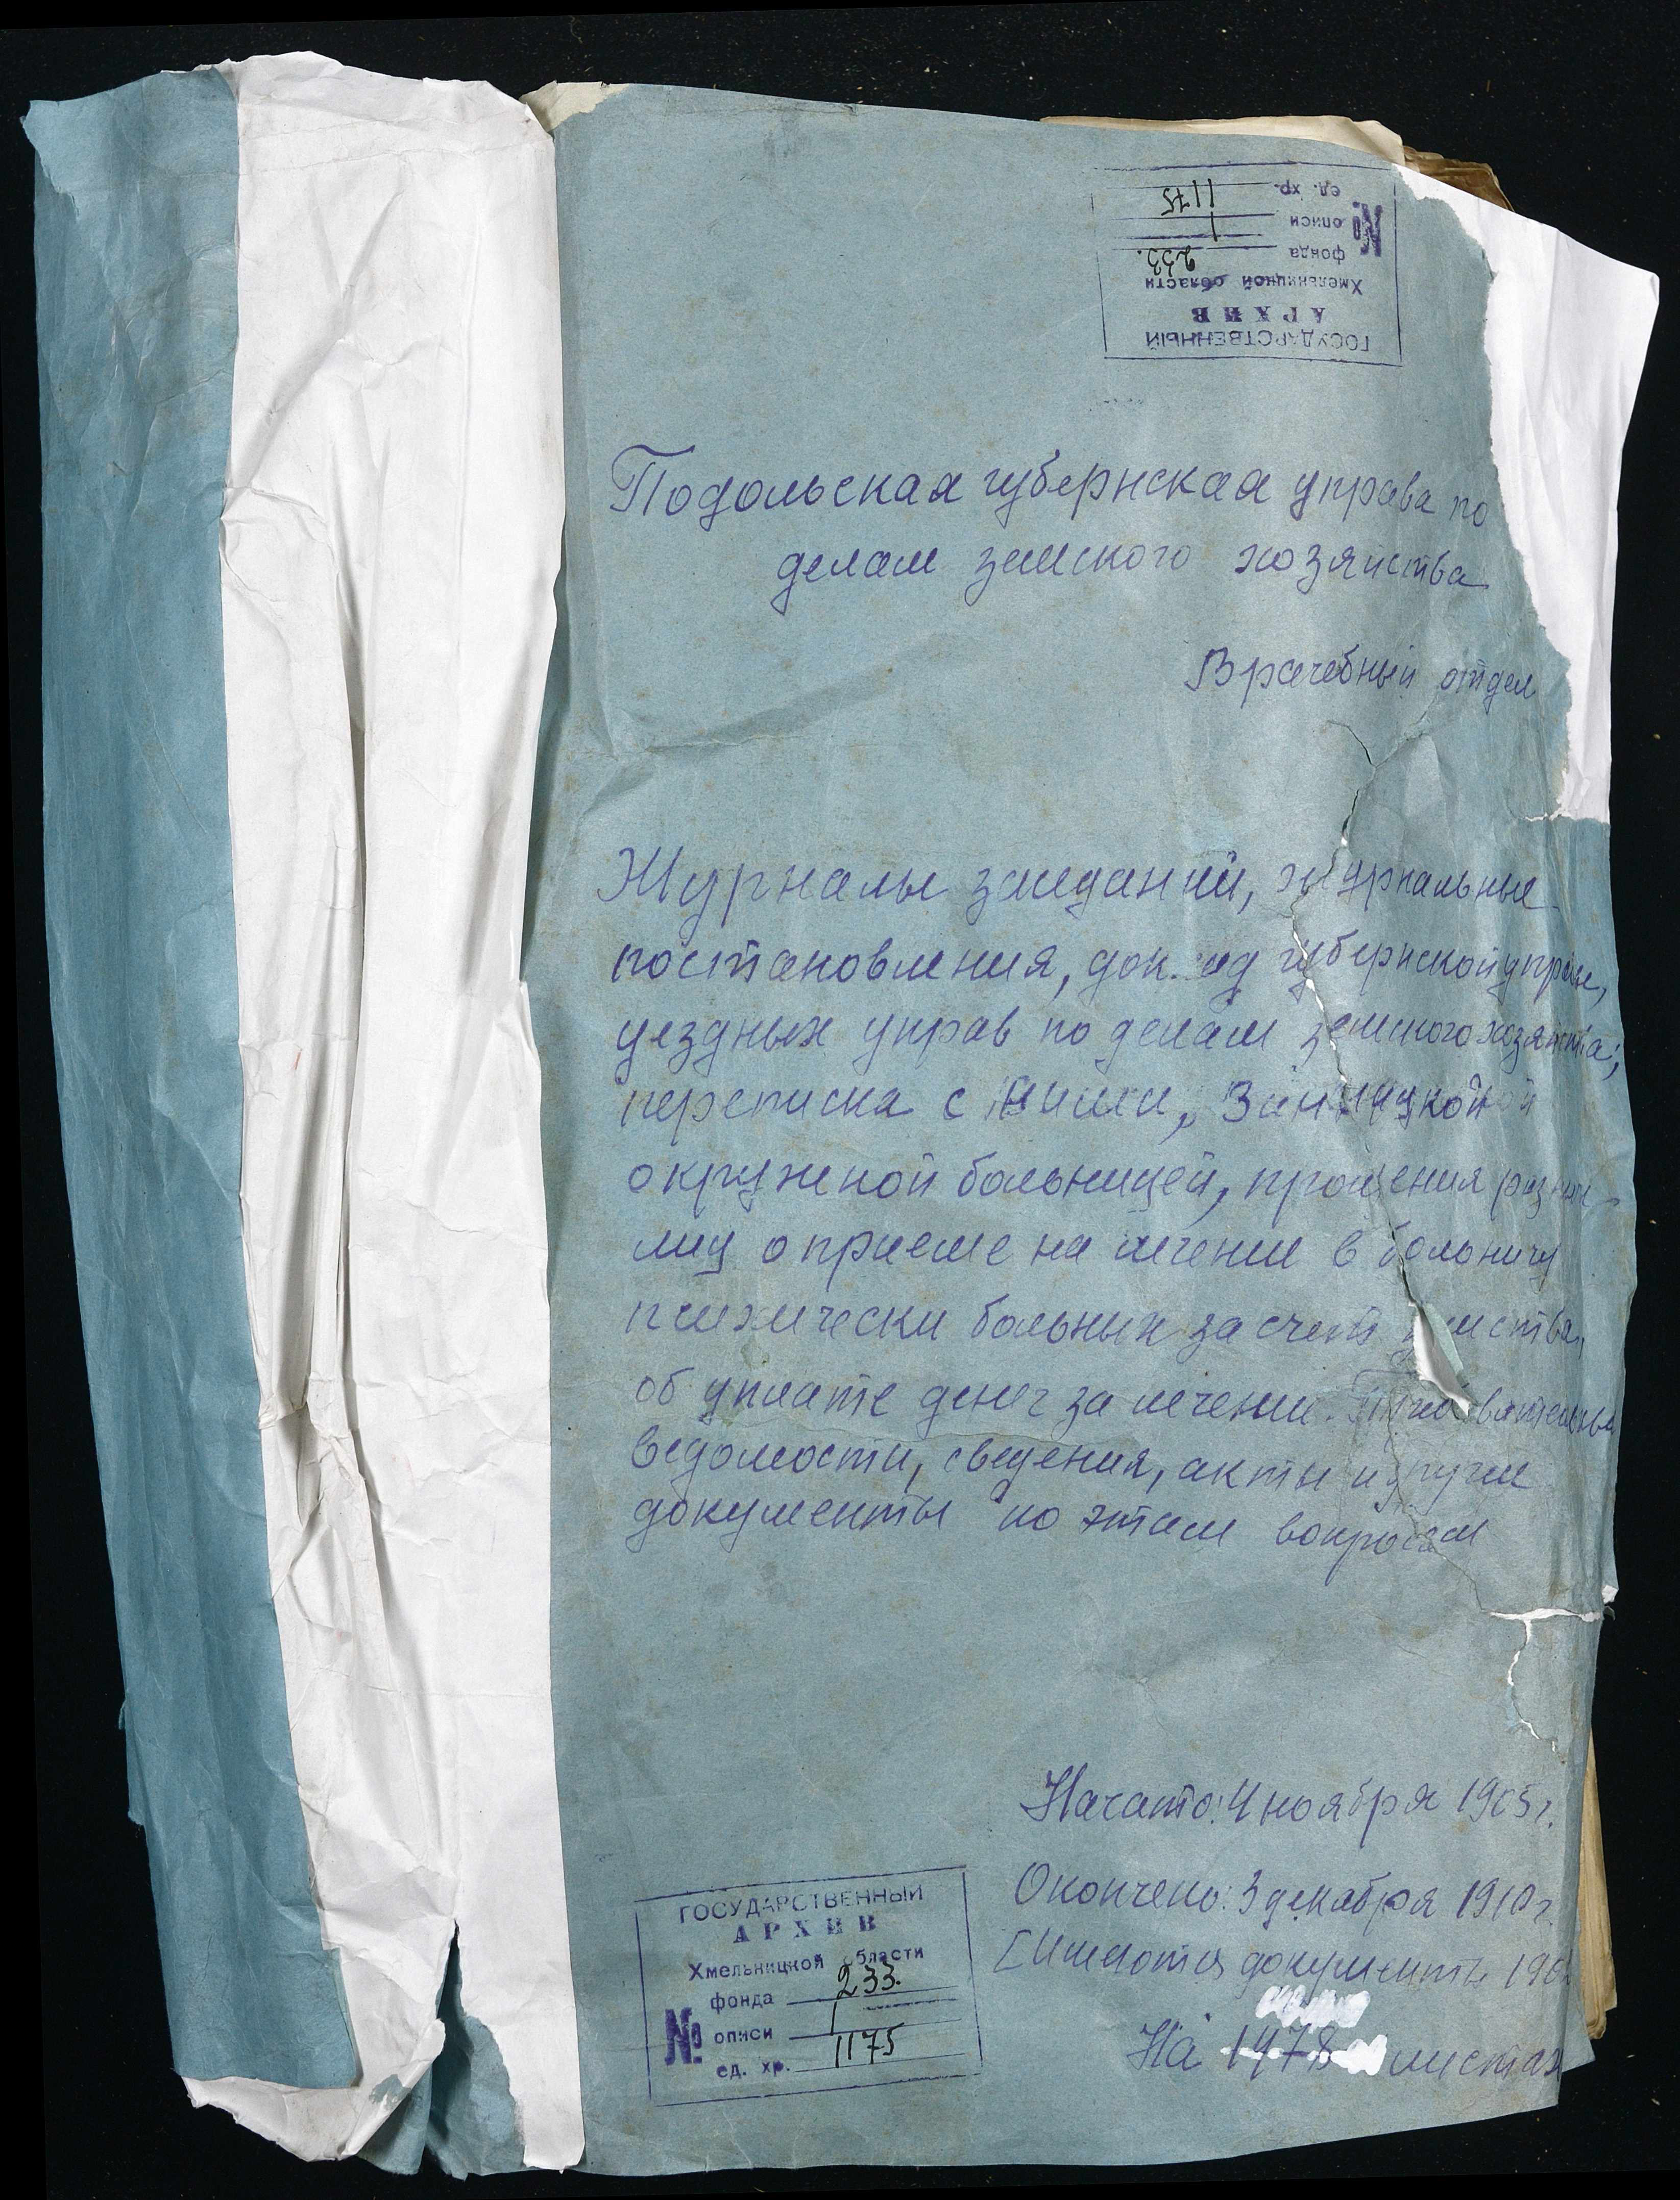 ГОСУДАРСТВЕННЫЙ
АРХИВ
Хмельницкой области
фонда 233.
№ описи 1
ед. хр. 1175
Подольская губернская управа по
делам земского хозяйства
Врачебный отдел
Журналы заседаний, журнальные
постановления, доклад губернской управе,
уездных управ по делам земского хозяйства;
переписка с ними,
окружной больницей, прошения разных
лиц о приеме на лечение в больницу
психически больных за счет земства,
об уплате денег за лечение.
ведомости, сведения, акты и другие
документы по этим вопросам
Начато: 4 ноября 1905 г.
Окончено: 3 декабря 1910 г.
[Имеются документы 190
На 1978 листах
ГОСУДАРСТВЕННЫЙ
АРХИВ
Хмельницкой области
фонда 233.
№ описи 1
ед. хр. 1175